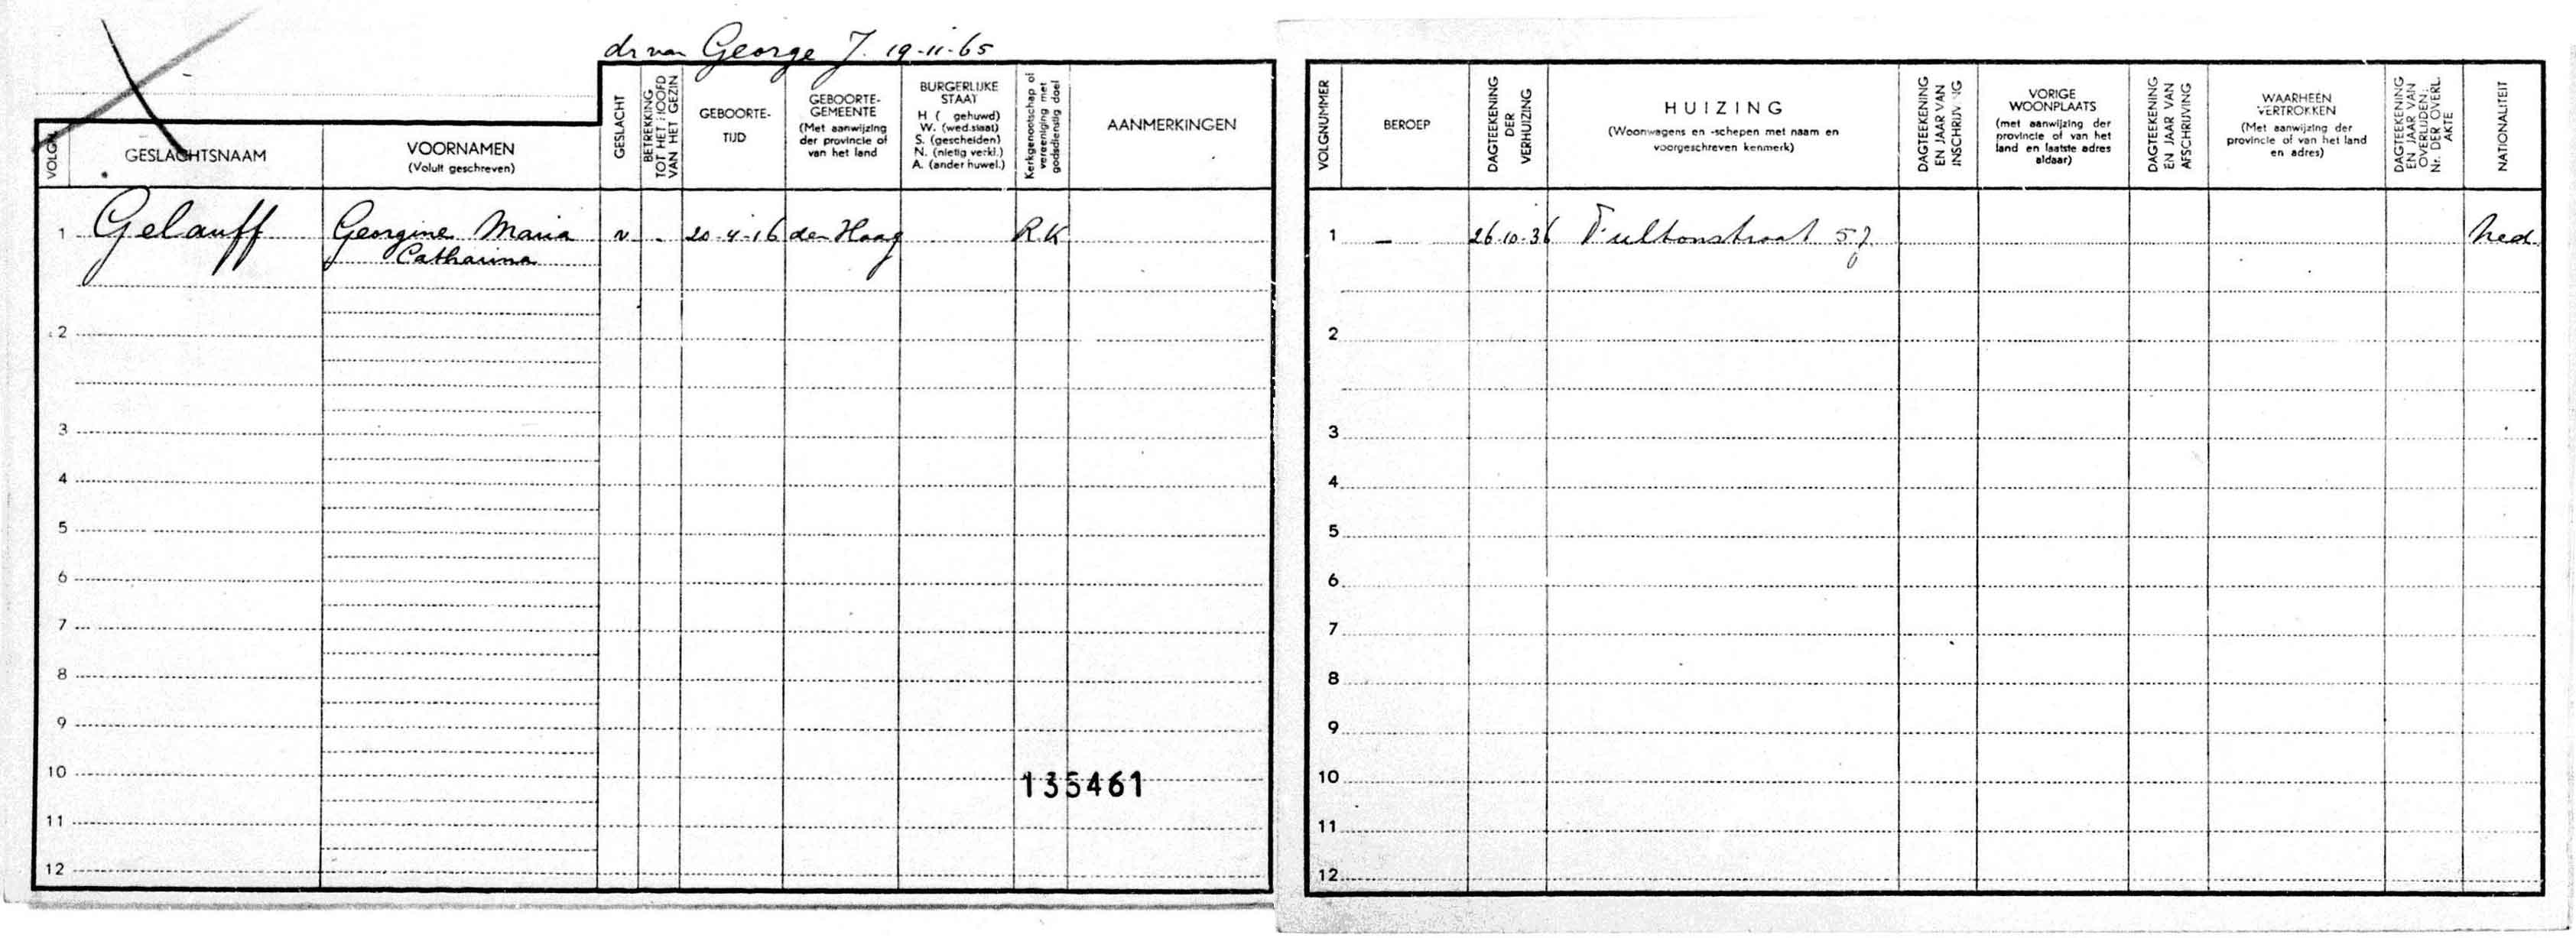 dr van George J. 19-11-65
VOLGN.
GESLACHTSNAAM
VOORNAMEN
(Voluit geschreven)
GESLACHT
BETREKKING
TOT HET HOOFD
VAN HET GEZIN
GEBOORTE-
TIJD
GEBOORTE-
GEMEENTE
(Met aanwijzing
der provincie of
van het land
BURGERLIJKE
STAAT
H ( gehuwd)
W. (wed.staat)
S. (gescheiden)
N. (nietig verkl.)
A. (ander huwel.)
Kerkgenootschap of
vereeniging met
godsdienstig doel
AANMERKINGEN
1 Gelauff Georgine Maria v - 20-4-16 den Haag RK
Catharina
2
3
4
5
6
7
8
9
10
135461
11
12
VOLGNUMMER
BEROEP
DAGTEEKENING
DER
VERHUIZING
HUIZING
(Woonwagens en -schepen met naam en
voorgeschreven kenmerk)
DAGTEEKENING
EN JAAR VAN
INSCHRIJVING
VORIGE
WOONPLAATS
(met aanwijzing der
provincie of van het
land en laatste adres
aldaar)
DAGTEEKENING
EN JAAR VAN
AFSCHRIJVING
WAARHEEN
VERTROKKEN
(Met aanwijzing der
provincie of van het land
en adres)
DAGTEEKENING
EN JAAR VAN
OVERLIJDEN:
Nr. DER OVERL.
AKTE
NATIONALITEIT
1 - 26-10-36 Fultonstraat 57 Ned
2
3
4
5
6
7
8
9
10
11
12